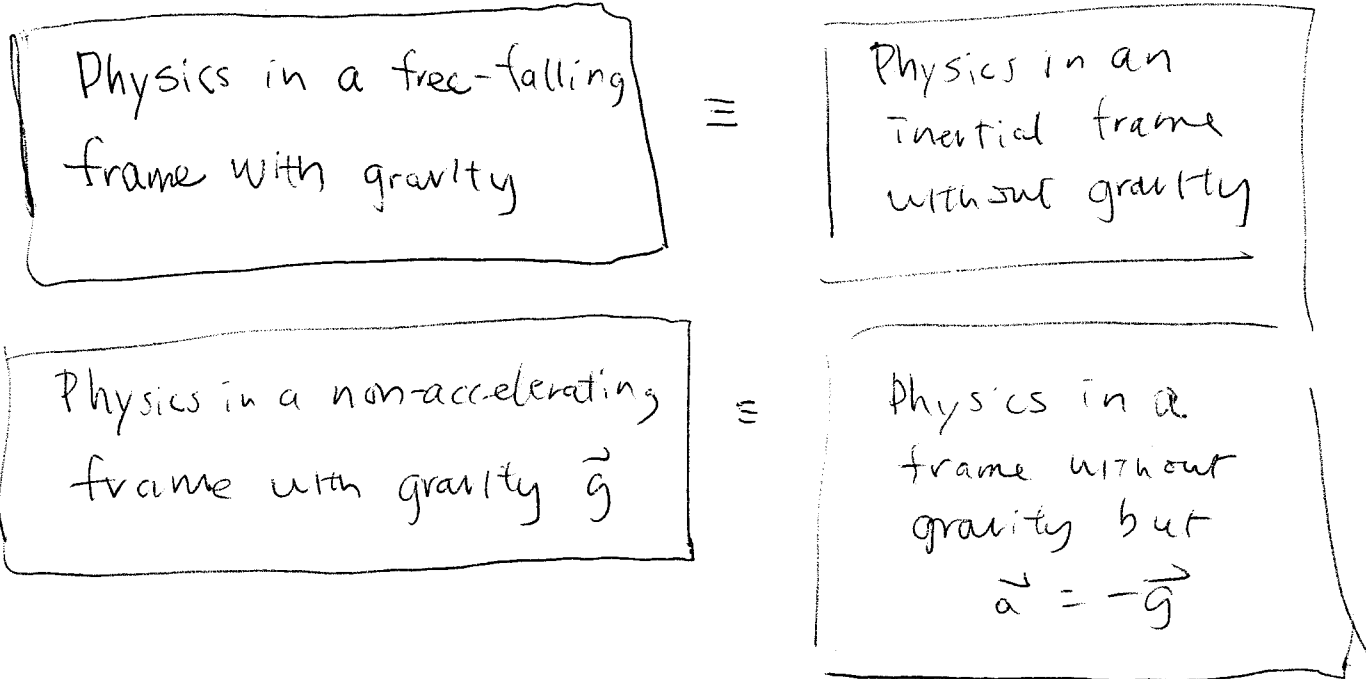 Physics in a free-falling
frame with gravity
≡
Physics in an
inertial frame
without gravity
Physics in a non-accelerating
frame with gravity g⃗
≡
Physics in a
frame without
gravity but
a⃗ = -g⃗